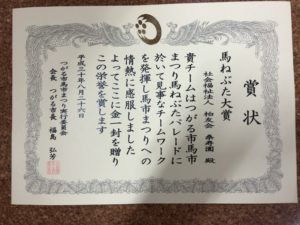 賞状
馬ねぶた大賞
社会福祉法人 柏友会 幸寿園 殿
貴チームはつがる市馬市
まつり馬ねぶたパレードに
於いて見事なチームワーク
を発揮し馬市まつりへの
情熱に感服しました
よってここに金一封を贈り
この栄誉を賞します
平成三十年八月二十六日
つがる市馬市まつり実行委員会
会長 つがる市長 福島 弘芳